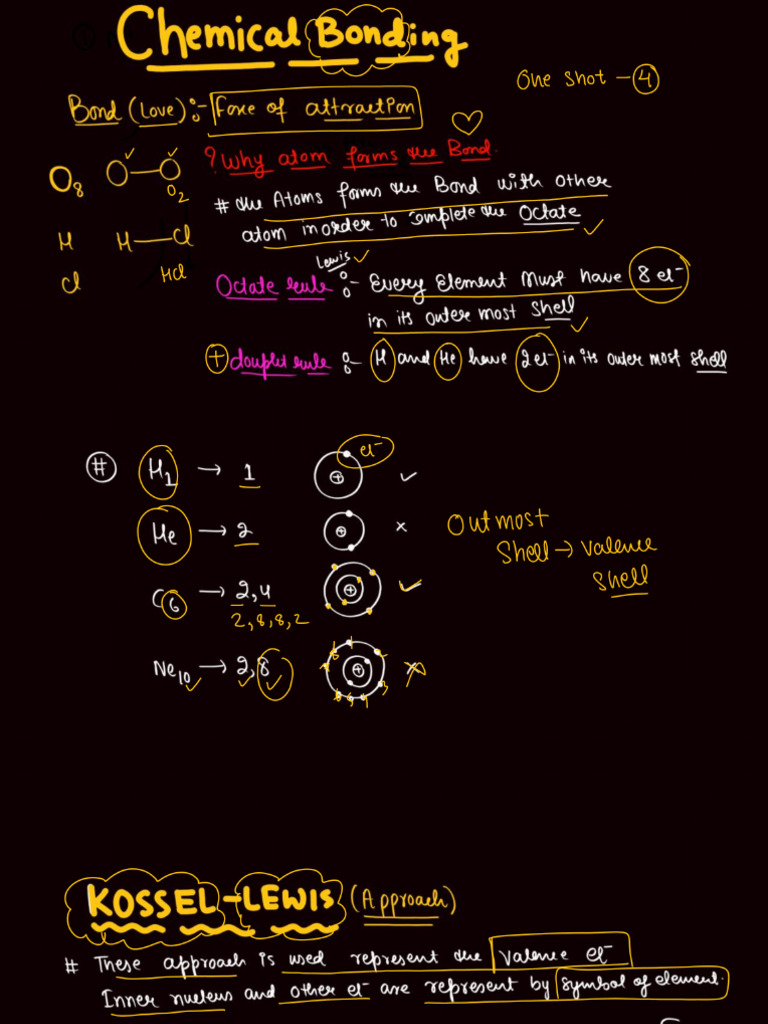 Chemical Bonding
One shot - 4
Bond (Love) :- Force of attraction
O8 O—O O2
? Why atom forms the Bond.
# the Atoms forms the Bond with other
atom in order to complete the Octate
H H—Cl
Cl HCl
Lewis
Octate rule :- Every Element Must have 8 el-
in its outer most shell
+ douplet rule :- H and He have 2el- in its outer most shell
# H1 → 1 el-
He → 2
Outmost
Shell → Valence
shell
C6 → 2,4
2,8,8,2
Ne10 → 2,8
KOSSEL-LEWIS (Approach)
# These approach is used represent the Valence el-
Inner nucleus and other el- are represent by symbol of element.